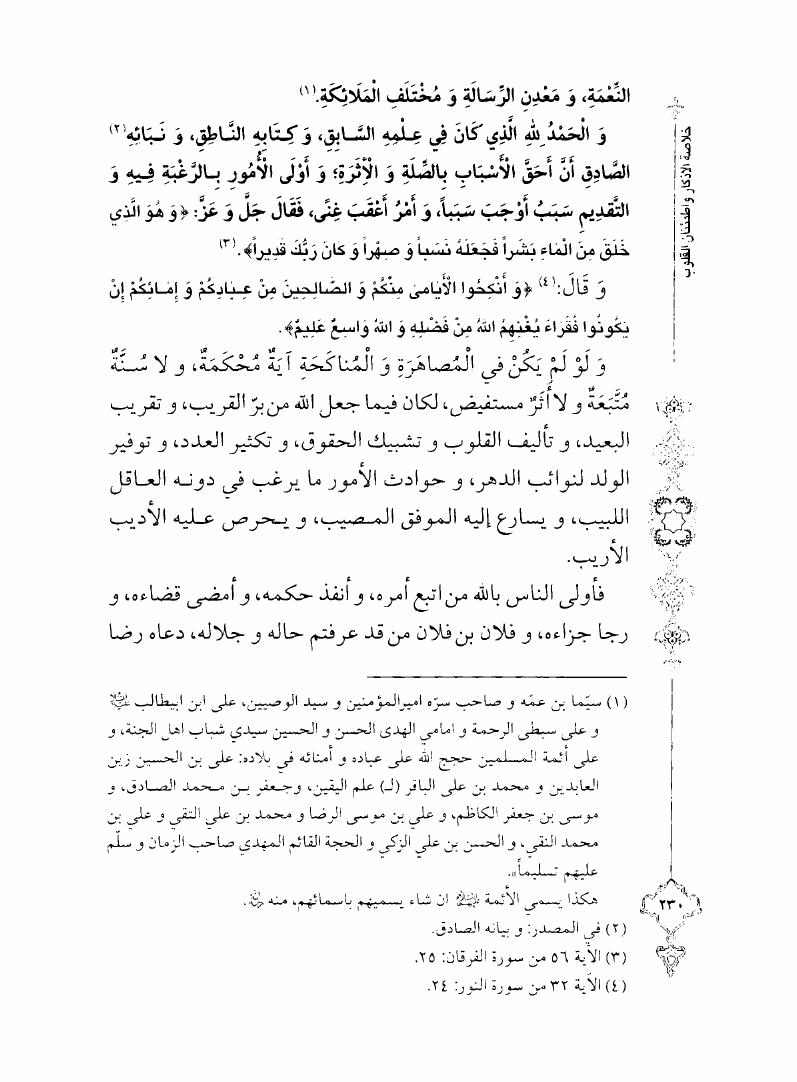 النِّعْمَةِ، وَ مَعْدِنِ الرِّسَالَةِ وَ مُخْتَلَفِ الْمَلَائِكَةِ.(١)
وَ الْحَمْدُ لِلهِ الَّذِي كَانَ فِي عِـلْمِهِ السَّـابِقِ، وَ كِـتَابِهِ النَّـاطِقِ، وَ نَـبَائِهِ(٢)
الصَّادِقِ أَنَّ أَحَقَّ الْأَسْبَابِ بِالصِّلَةِ وَ الْأَثَرَةِ؛ وَ أَوْلَى الْأُمُورِ بِـالرَّغْبَةِ فِـيهِ وَ
التَّقدِيمِ سَبَبُ أَوْجَبَ سَبَباً، وَ أَمْرُ أَعْقَبَ غِنًى، فَقَالَ جَلَّ وَ عَزَّ: ﴿وَ هُوَ الَّذِي
خَلَقَ مِنَ الْمَاءِ بَشَراً فَجَعَلَهُ نَسَباً وَ صِهْراً وَ كَانَ رَبُّكَ قَدِيراً﴾.(٣)
وَ قَالَ:(٤) ﴿وَ أَنْكِحُوا الْأَيَامىٰ مِنْكُمْ وَ الصَّالِحِينَ مِنْ عِـبَادِكُمْ وَ إِمَـائِكُمْ إِنْ
يَكُونُوا فُقَرَاءَ يُغْنِهِمُ اللهُ مِنْ فَضْلِهِ وَ اللهُ وَاسِعٌ عَلِيمٌ﴾.
وَ لَوْ لَمْ يَكُنْ في الْمُصاهَرَةِ وَ الْمُناكَحَةِ آيَةٌ مُحْكَمَةٌ، و لا سُـنَّةٌ
مُتَّبَعَةٌ و لا أَثَرٌ مستفيض، لكان فيما جعل الله من برّ القريب، و تقريب
البعيد، و تأليف القلوب و تشبيك الحقوق، و تكثير العدد، و توفير
الولد لنوائب الدهر، و حوادث الأمور ما يرغب في دونـه العـاقل
اللبيب، و يسارع إليه الموفق المـصيب، و يـحرص عـليه الأديب
الأريب.
فأولى الناس بالله من اتبع أمره، و أنفذ حكمه، و أمضى قضاءه، و
رجا جزاءه، و فلان بن فلان من قد عرفتم حاله و جلاله، دعاه رضا
(١) سيّما بن عمّه و صاحب سرّه اميرالمؤمنين و سيد الوصيين، على ابن ابيطالب
و على سبطى الرحمة و امامي الهدى الحسن و الحسين سيدي شباب اهل الجنة، و
على أئمة المسلمين حجج الله على عباده و أمنائه في بلاده: على بن الحسين زين
العابدين و محمد بن على الباقر (لـ) علم اليقين، وجـعفر بـن مـحمد الصـادق، و
موسى بن جعفر الكاظم، و علي بن موسى الرضا و محمد بن علي التقي و علي بن
محمد النقي، و الحسن بن علي الزكي و الحجة القائم المهدي صاحب الزمان و سلّم
عليهم تسليماً».
هكذا يسمي الأئمة ان شاء يسميهم باسمائهم، منه.
(٢) في المصدر: و بيانه الصادق.
(٣) الآية ٥٦ من سورة الفرقان: ٢٥.
(٤) الآية ٣٢ من سورة النور: ٢٤.
خلاصة الاذكار و اطمئنان القلوب
٢٣٠